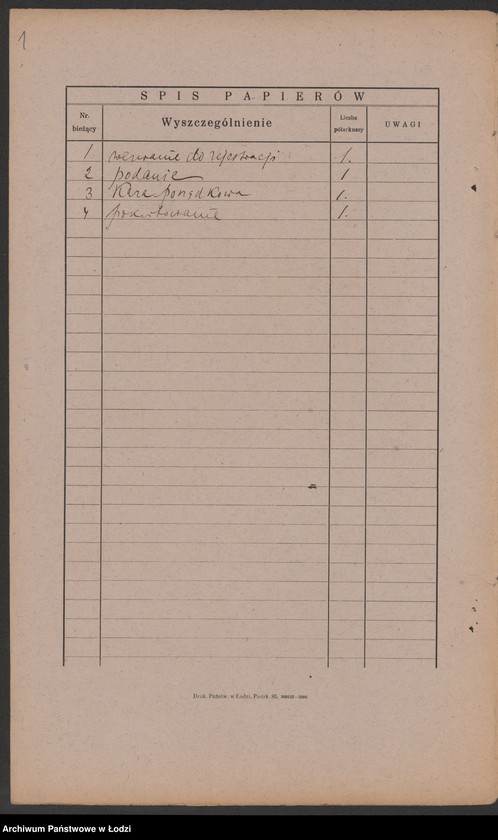 1
SPIS PAPIERÓW
Nr. bieżący Wyszczególnienie Liczba półarkuszy UWAGI
1 wezwanie do rejestracji 1.
2 podanie 1
3 Kara porządkowa 1.
4 pokwitowanie 1.
Druk. Państw. w Łodzi, Piotrk. 85.
Archiwum Państwowe w Łodzi